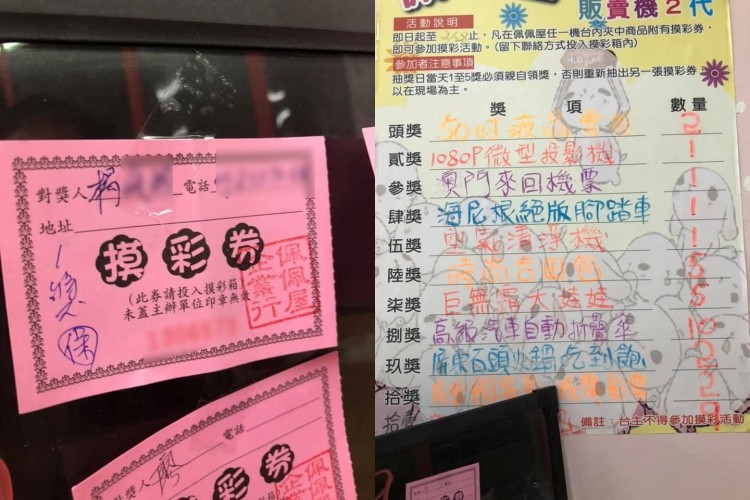 對獎人 楊
電話
地址
1獎
保
摸彩券
(此券請投入摸彩箱
未蓋主辦單位印章無效
佩佩屋
企業行
電話
摸彩券
佩佩屋
販賣機2代
活動說明
即日起至2/28止，凡在佩佩屋任一機台內夾中商品附有摸彩券，
即可參加摸彩活動。(留下聯絡方式投入摸彩箱內)
參加者注意事項
抽獎日當天1至5獎必須親自領獎，否則重新抽出另一張摸彩券
以在現場為主。
獎項 數量
頭獎 50吋液晶 2
貳獎 1080P微型投影機 1
參獎 澳門來回機票 1
肆獎 海尼根絕版腳踏車 1
伍獎 空氣清淨機 1
陸獎 時尚 包 5
柒獎 巨無霸大娃娃 5
捌獎 高級汽車自動折疊傘 10
玖獎 屏東石頭火鍋吃到飽
拾獎
拾壹
備註：台主不得參加摸彩活動
摸彩券